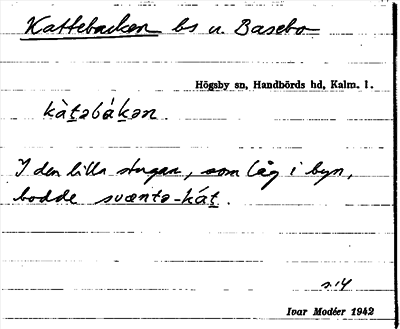 Kattebacken bs u. Basebo
Högsby sn, Handbörds hd, Kalm. l.
kàt̲əbák̲ən
I den lilla stugan, som låg i byn,
bodde svæntə-kát̲.
s. 14
Ivar Modéer 1942